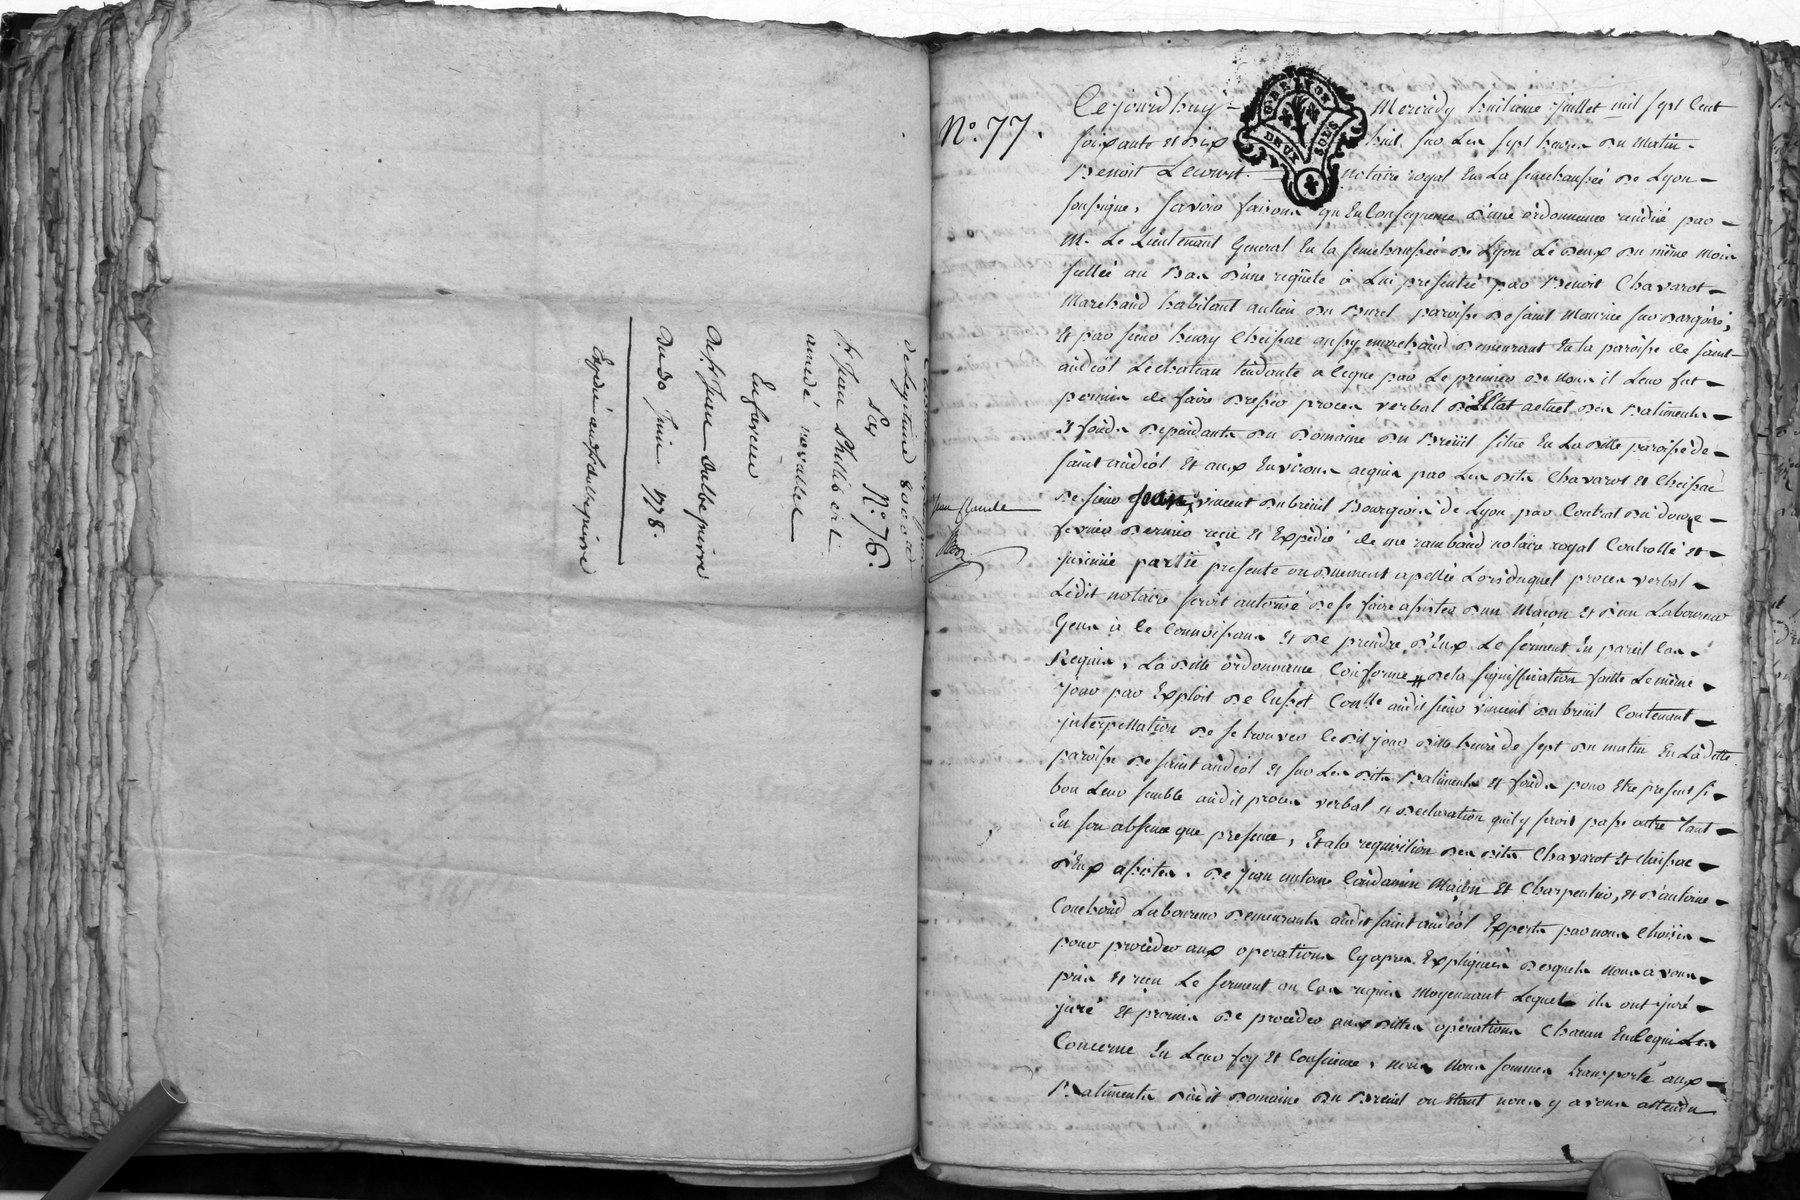 de legitime 8000 ##
N°. 76.
Par
Sr. Jean Philibert
amedé ravallet
En faveur
De Sr. Jean Dalbepierre
Du 30 Juin 1778.
Expedié aud. Sr. dalbepierre
N°. 77.
Cejourdhuy Mercredy huitieme juillet mil sept cent
soixante et dix huit sur Les sept heures du matin
Benoit Lecourt notaire royal En La senechaussée De Lyon
soussigné, savoir faisons qu'En Consequence d'une ordonnance rendüe par
M. Le Lieutenant General En la senechaussée De Lyon Le deux du même mois
au Bas d'une requête à Lui presentée par Benoit Chavarot
Marchand habitant au lieu du Buret paroisse De saint Maurice sur dargoire,
Et par sieur henry Cheissac aussy marchand demeurant En la paroisse de saint
andéol Lechateau tendante a ceque par Le premier de nous il Leur fut
permis de faire dresser procès verbal de L'Etat actuel des Batiments
Et fonds dependants du Domaine du Breüil situé En La ditte paroisse de
saint andéol Et aux Environs acquis par Les dits Chavarot Et Cheissac
De sieur vincent dubreüil Bourgeois de Lyon par Contrat du douze
Jean Claude
fevrier dernier reçu Et Expedié de me rambaud notaire royal Controllé Et
partie presente ou duement apellée Lors duquel procès verbal
Ledit notaire seroit autorisé de se faire assister d'un Maçon Et d'un Laboureur
Gens à ce Connoissans Et De prendre d'Eux Le serment En pareil Cas
Requis, La ditte ordonnance Conforme de la signiffication faitte Le même
Jour par Exploit de audit sieur vincent dubreüil Contenant
interpellation de se trouver Cedit jour ditte heure de sept du matin En La ditte
paroisse de saint andéol Et sur Les dits Batiments Et fonds pour Etre present si
bon Leur semble audit procès verbal Et declaration quil y seroit passé outre tant
En son absence que presence, Et a la requisition des dits Chavarot Et Cheissac
d'Eux assistés. De jean antoine Maçon Et Charpentier, Et d'antoine
Couchoud Laboureur demeurants audit saint andéol Experts par nous Choisis
pour proceder aux operations Cy apres Expliquées desquels nous avons
pris Et reçu Le serment au Cas requis Moyennant Lequel ils ont juré
juré Et promis De proceder aux dittes operations Chacun En Ce qui Les
Concerne En Leur foy Et Conscience, nous nous sommes transporté aux
Batiments dudit Domaine du Breüil ou Etant nous y avons attendu